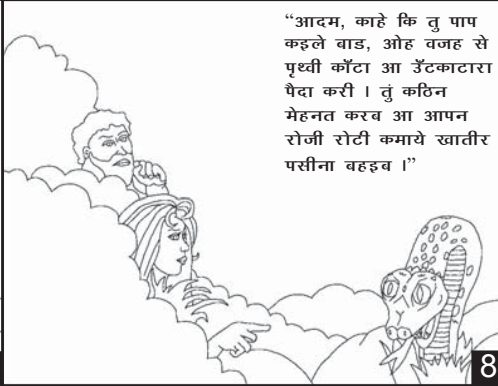 “आदम, काहे कि तु पाप
कइले बाड, ओह वजह से
पृथ्वी काँटा आ उँटकाटारा
पैदा करी । तुं कठिन
मेहनत करब आ आपन
रोजी रोटी कमाये खातीर
पसीना बहइब ।”
8